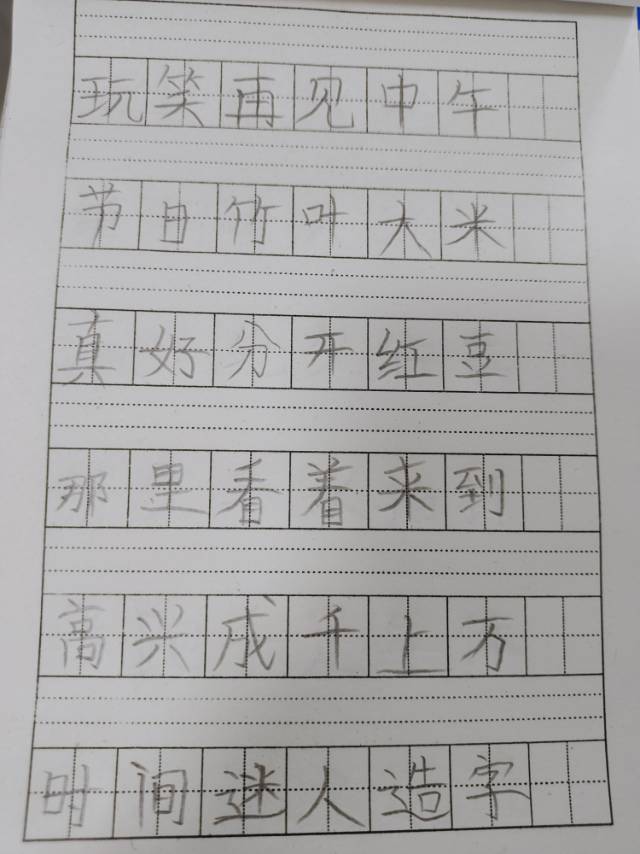 玩笑再见中午
节日竹叶大米
真好分开红豆
那里看着来到
高兴成千上万
时间迷人造字